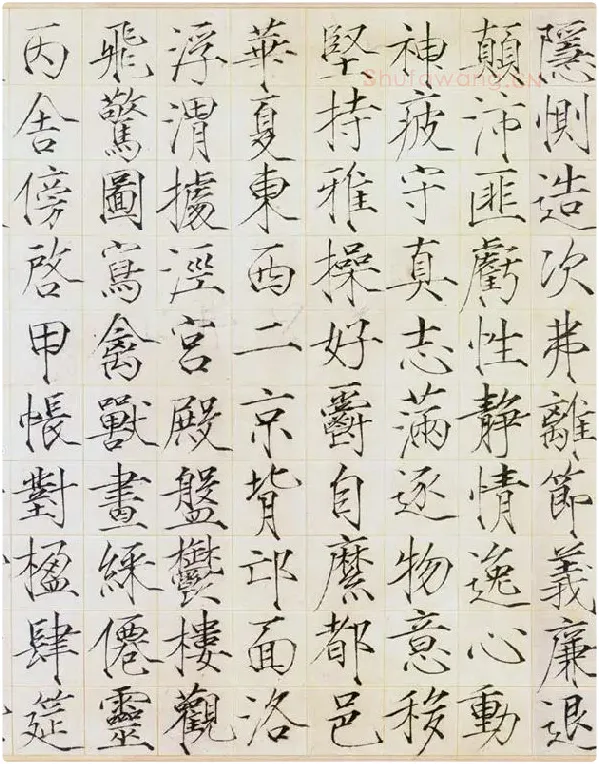 隱惻造次弗離節義廉退
顛沛匪虧性靜情逸心動
神疲守真志滿逐物意移
堅持雅操好爵自縻都邑
華夏東西二京背邙面洛
浮渭據涇宮殿盤鬱樓觀
飛驚圖寫禽獸畫綵僊靈
丙舍傍啓甲帳對楹肆筵
Shufawang.CN